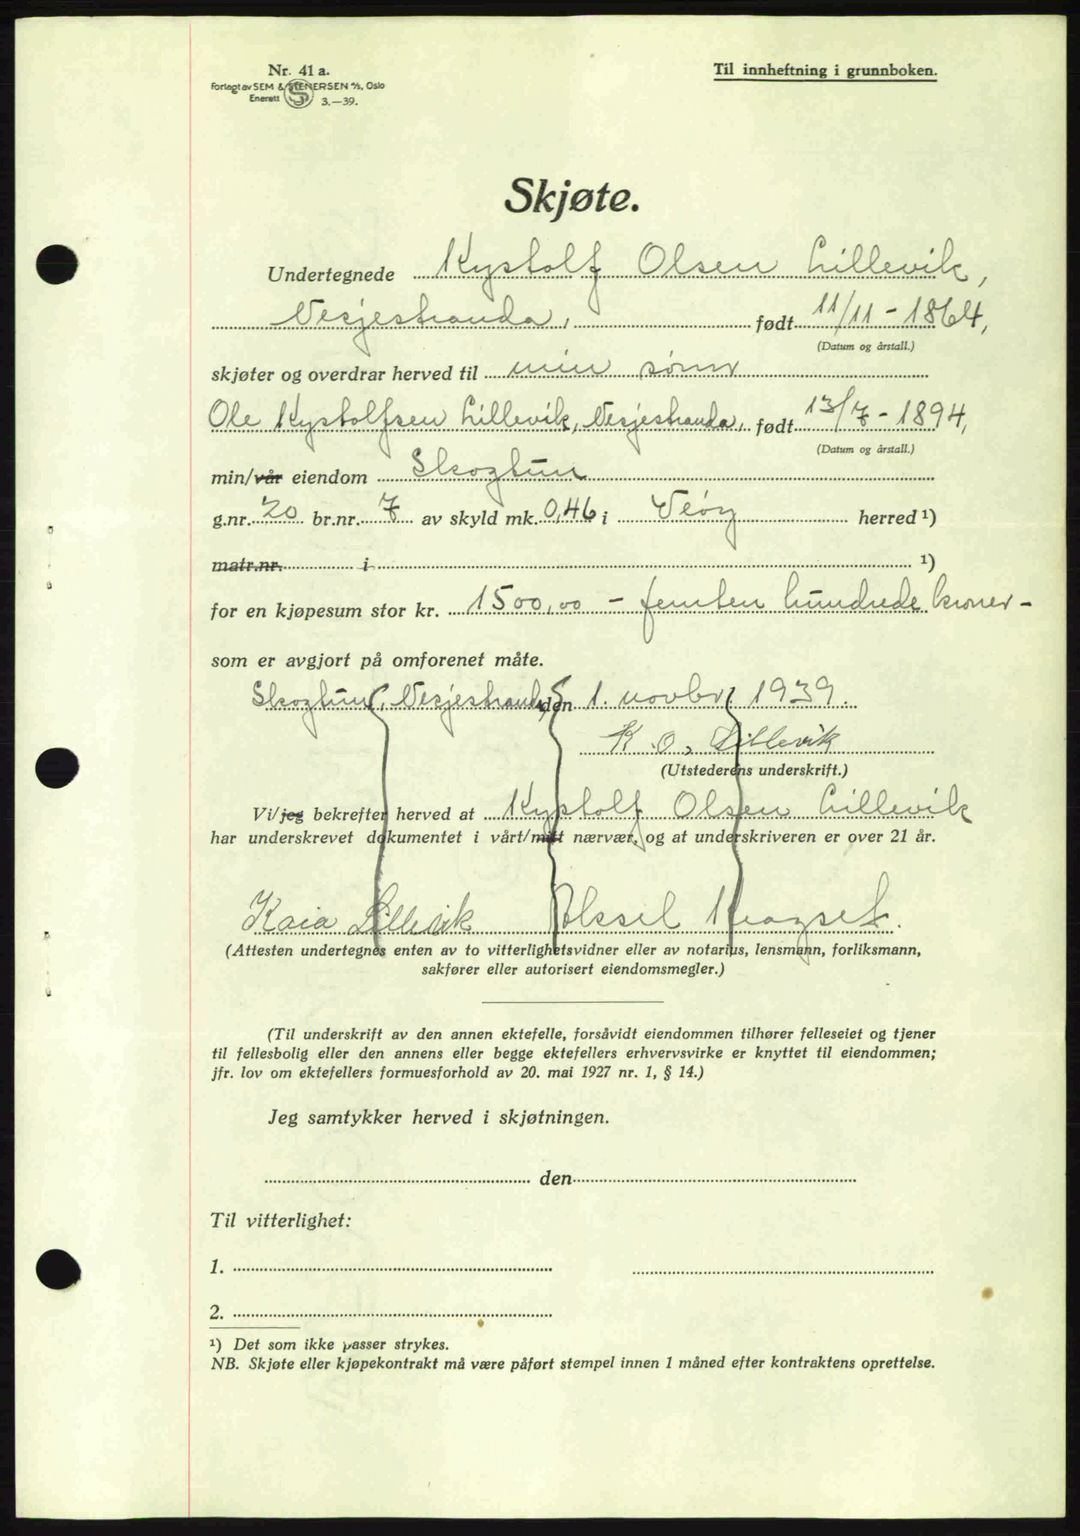 Nr. 41 a.
Forlagt av SEM & STENERSEN A/S, Oslo
Enerett 3.—39.
Til innheftning i grunnboken.
Skjøte.
Undertegnede Kystolf Olsen Lillevik,
Nesjestranda, født 11/11 - 1864,
(Datum og årstall.)
skjøter og overdrar herved til min sønn
Ole Kystolfsen Lillevik, Nesjestranda, født 13/7 - 1894,
(Datum og årstall.)
min/vår eiendom Skogtun
g.nr. 20 br.nr. 7 av skyld mk. 0,46 i Veøy herred ¹)
matr.nr. i ¹)
for en kjøpesum stor kr. 1500,00 - femten hundrede kroner -
som er avgjort på omforenet måte.
Skogtun, Nesjestranda den 1. novbr. 1939.
K. O. Lillevik
(Utstederens underskrift.)
Vi/jeg bekrefter herved at Kystolf Olsen Lillevik
har underskrevet dokumentet i vårt/mitt nærvær, og at underskriveren er over 21 år.
Kaia Lillevik Aksel Kragset.
(Attesten undertegnes enten av to vitterlighetsvidner eller av notarius, lensmann, forliksmann,
sakfører eller autorisert eiendomsmegler.)
(Til underskrift av den annen ektefelle, forsåvidt eiendommen tilhører felleseiet og tjener
til fellesbolig eller den annens eller begge ektefellers erhvervsvirke er knyttet til eiendommen;
jfr. lov om ektefellers formuesforhold av 20. mai 1927 nr. 1, § 14.)
Jeg samtykker herved i skjøtningen.
den
Til vitterlighet:
1.
2.
¹) Det som ikke passer strykes.
NB. Skjøte eller kjøpekontrakt må være påført stempel innen 1 måned efter kontraktens oprettelse.